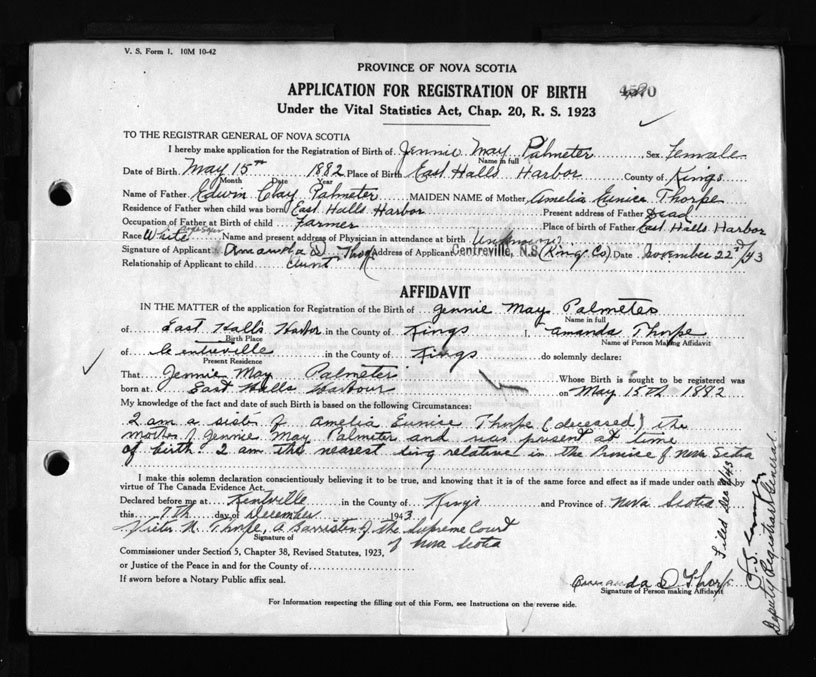 V. S. Form 1. 10M 10-42
PROVINCE OF NOVA SCOTIA
APPLICATION FOR REGISTRATION OF BIRTH
Under the Vital Statistics Act, Chap. 20, R. S. 1923
TO THE REGISTRAR GENERAL OF NOVA SCOTIA
I hereby make application for the Registration of Birth of Jennie May Palmeter Sex Female
Name in full
Date of Birth May 15th 1882 Place of Birth East Halls Harbor County of Kings
Month Date Year
Name of Father Edwin Clay Palmeter MAIDEN NAME of Mother Amelia Eunice Thorpe
Residence of Father when child was born East Halls Harbor Present address of Father Dead
Occupation of Father at Birth of child Farmer Place of birth of Father East Halls Harbor
Race White Name and present address of Physician in attendance at birth Unknown
Signature of Applicant Amanda D Thorpe Address of Applicant Centreville, N.S. (Kings Co) Date November 22nd/43
Relationship of Applicant to child Aunt
AFFIDAVIT
IN THE MATTER of the application for Registration of the Birth of Jennie May Palmeter
Name in full
of East Halls Harbor in the County of Kings I, Amanda Thorpe
Birth Place Name of Person Making Affidavit
of Centreville in the County of Kings do solemnly declare:
Present Residence
That Jennie May Palmeter Whose Birth is sought to be registered was
born at East Halls Harbour on May 15th 1882
My knowledge of the fact and date of such Birth is based on the following Circumstances:
I am a sister of Amelia Eunice Thorpe (deceased) the
mother of Jennie May Palmeter and was present at time
of birth. I am the nearest living relative in the Province of Nova Scotia
I make this solemn declaration conscientiously believing it to be true, and knowing that it is of the same force and effect as if made under oath and by
virtue of The Canada Evidence Act.
Declared before me at Kentville in the County of Kings and Province of Nova Scotia
this 7th day of December 1943
Victor N. Thorpe, A Barrister of the Supreme Court
of Nova Scotia
Signature of
Commissioner under Section 5, Chapter 38, Revised Statutes, 1923,
or Justice of the Peace in and for the County of
If sworn before a Notary Public affix seal.
Amanda D Thorpe
Signature of Person making Affidavit
For Information respecting the filling out of this Form, see Instructions on the reverse side.
Filed Dec 9/43
Deputy Registrar General